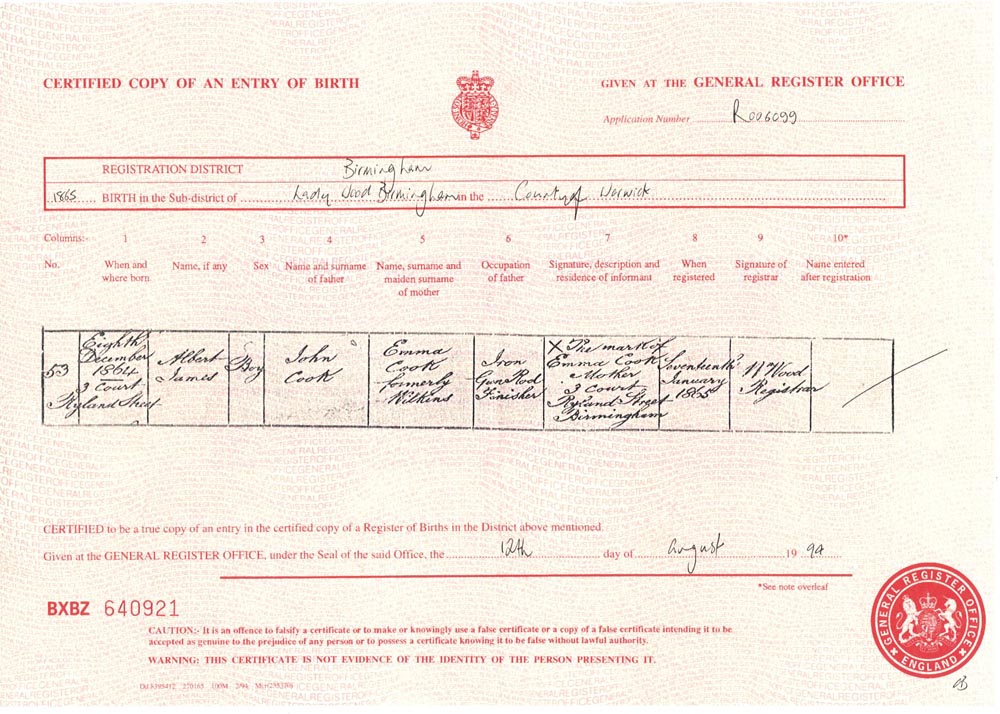 CERTIFIED COPY OF AN ENTRY OF BIRTH
GIVEN AT THE GENERAL REGISTER OFFICE
Application Number R006099
REGISTRATION DISTRICT Birmingham
1865 BIRTH in the Sub-district of Lady Wood Birmingham in the County of Warwick
Columns:- 1 2 3 4 5 6 7 8 9 10*
No. When and where born Name, if any Sex Name and surname of father Name, surname and maiden surname of mother Occupation of father Signature, description and residence of informant When registered Signature of registrar Name entered after registration
53
Eighth
December
1864
3 Court
Ryland Street
Albert
James
Boy
John
Cook
Emma
Cook
formerly
Wilkins
Iron
Gun Rod
Finisher
X The mark of
Emma Cook
Mother
3 Court
Ryland Street
Birmingham
Seventeenth
January
1865
W Wood
Registrar
CERTIFIED to be a true copy of an entry in the certified copy of a Register of Births in the District above mentioned.
Given at the GENERAL REGISTER OFFICE, under the Seal of the said Office, the 12th day of August 1994
*See note overleaf
BXBZ 640921
CAUTION:- It is an offence to falsify a certificate or to make or knowingly use a false certificate or a copy of a false certificate intending it to be
accepted as genuine to the prejudice of any person or to possess a certificate knowing it to be false without lawful authority.
WARNING: THIS CERTIFICATE IS NOT EVIDENCE OF THE IDENTITY OF THE PERSON PRESENTING IT.
GENERAL REGISTER OFFICE
ENGLAND